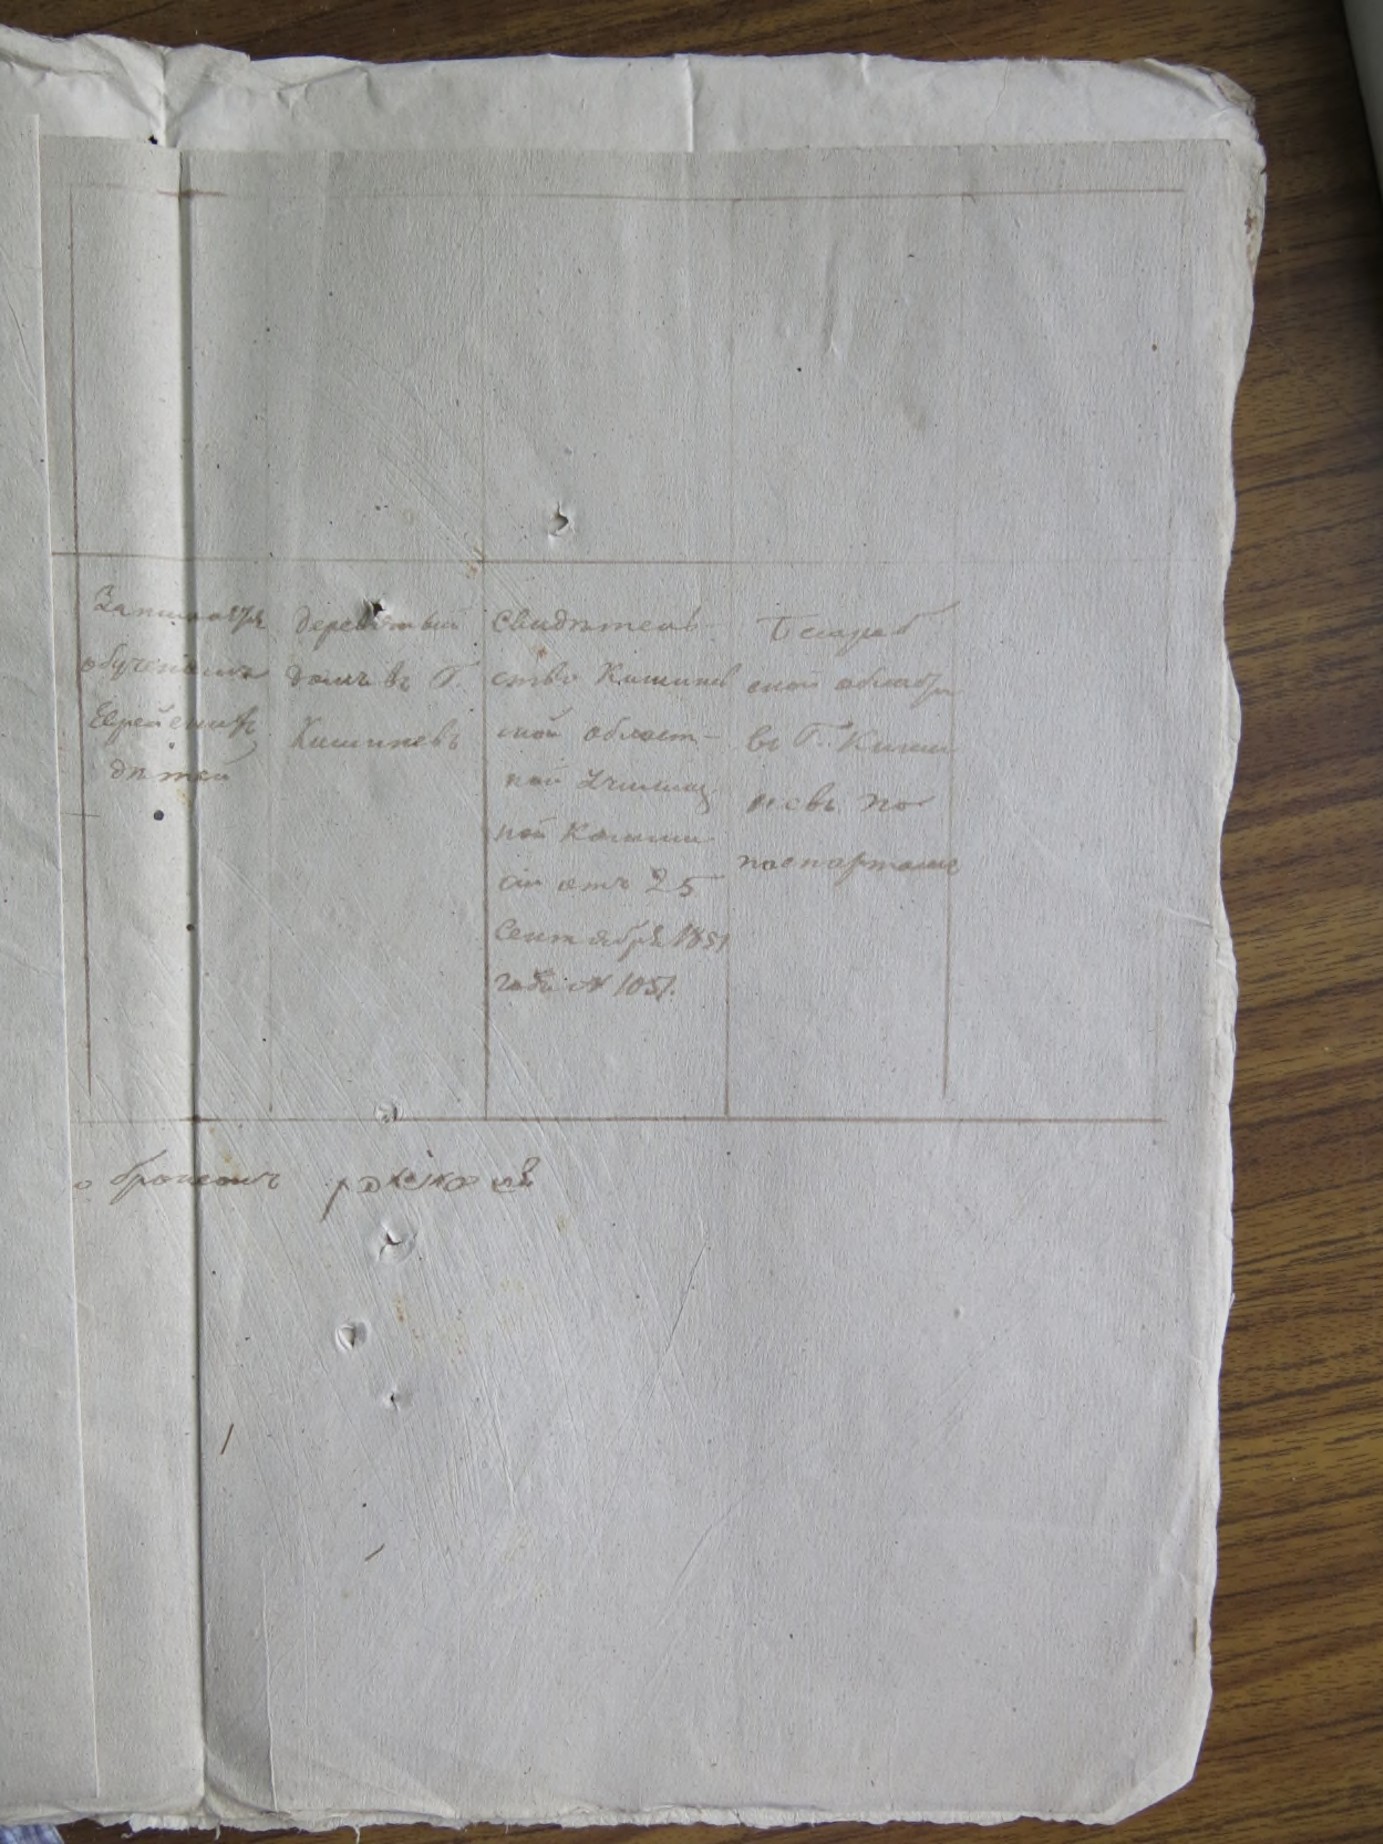 Занимается
обученіемъ
Еврейскихъ
дѣтей
деревянный
домъ въ Г.
Кишиневѣ
Свидѣтель-
ство Кишинев
ской област-
ной Училищ
ной Комми
сіи отъ 25
Сентября 1851
года № 1051.
Бесараб
ской области
въ Г. Киши
невѣ по
паспортамъ